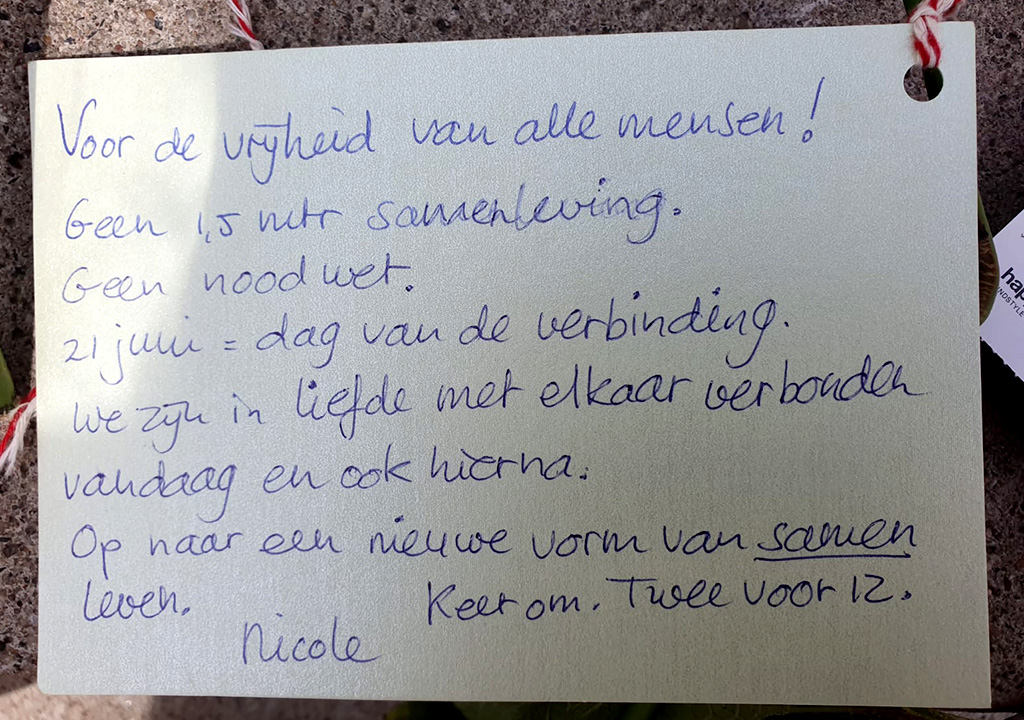 Voor de vrijheid van alle mensen!
Geen 1,5 mtr samenleving.
Geen noodwet.
21 juni = dag van de verbinding.
We zijn in liefde met elkaar verbonden
vandaag en ook hierna.
Op naar een nieuwe vorm van samen
leven.
Keer om. Twee voor 12.
Nicole